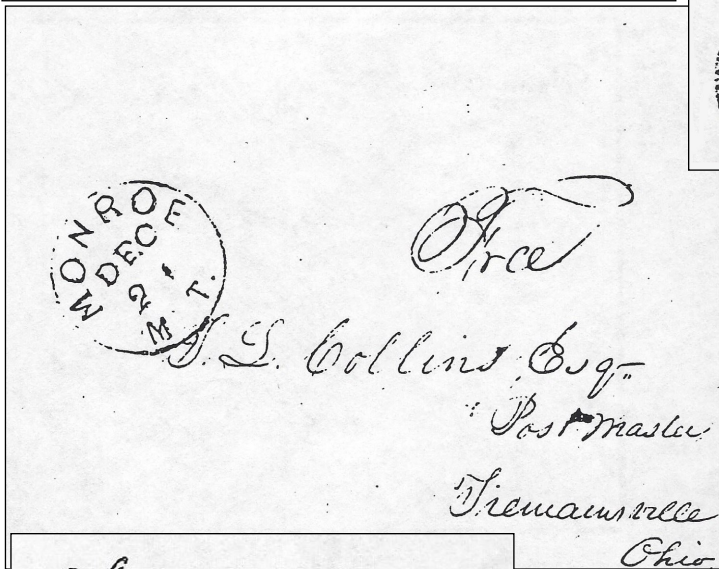 MONROE
DEC
2
M. T.
Free
J. L. Collins Esqr
Post Master
Tremainsville
Ohio